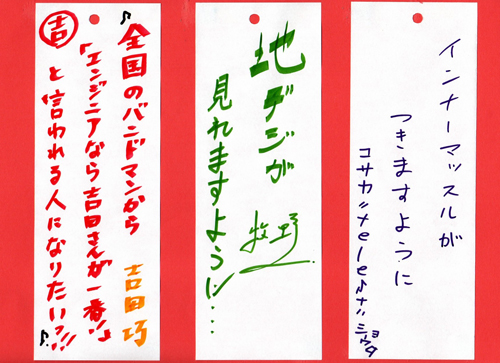 インナーマッスルが
つきますように
コサカ
ショウタ
地デジが
見れますように...
牧野
♪全国のバンドマンから
「エンジニアなら吉田さんが一番!!」
吉と言われる人になりたいっ!!!♪
吉田巧